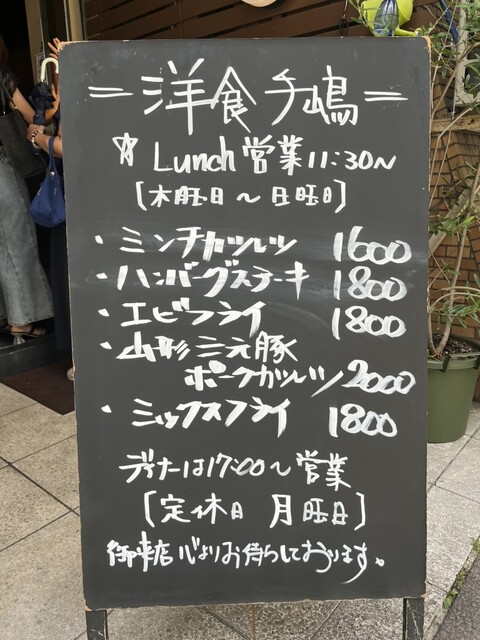 =洋食 手嶋=
☆ Lunch 営業 11:30~
[木曜日 ~ 日曜日]
・ミンチカツレツ 1600
・ハンバーグステーキ 1800
・エビフライ 1800
・山形三元豚
ポークカツレツ 2000
・ミックスフライ 1800
ディナーは17:00~営業
[定休日 月曜日]
御来店心よりお待ちしております。